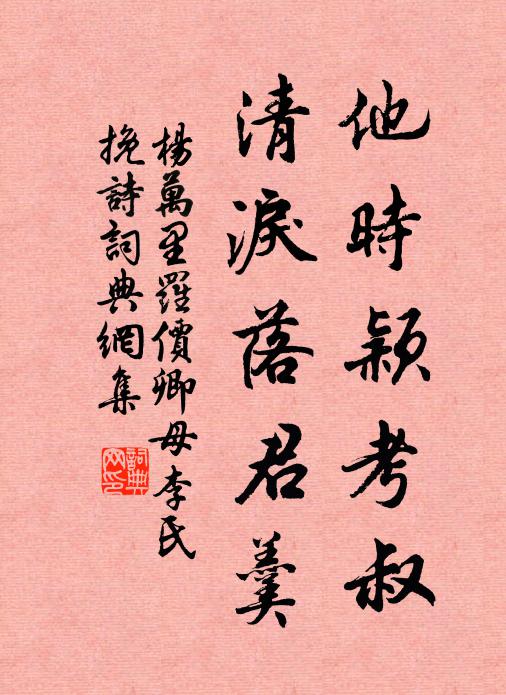 他時潁考叔
清淚落君羹
楊萬里羅價卿母李氏
挽詩詞典網集
詞典网印